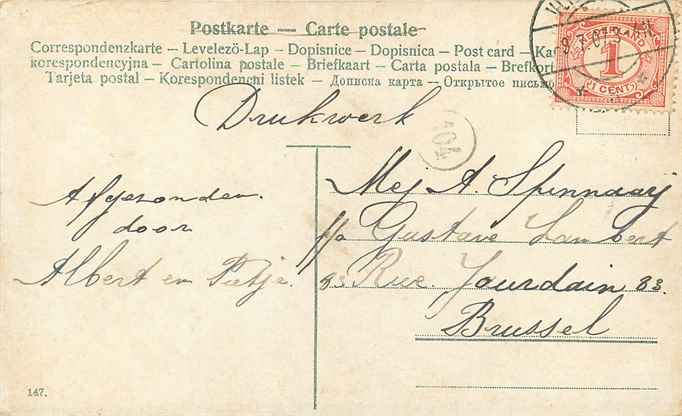 Postkarte — Carte postale
Correspondenzkarte – Levelezö-Lap – Dopisnice – Dopisnica – Post card –
korespondencyjna – Cartolina postale – Briefkaart – Carta postala –
Tarjeta postal – Korespondencni listek – Дописна карта – Открытое
Drukwerk
NEDERLAND
1
1 CENT
404
Afgezonden
door
Albert en
Mej A. Spinnaay
p/a Gustave Lambert
83 Rue Jourdain 83.
Brussel
147.